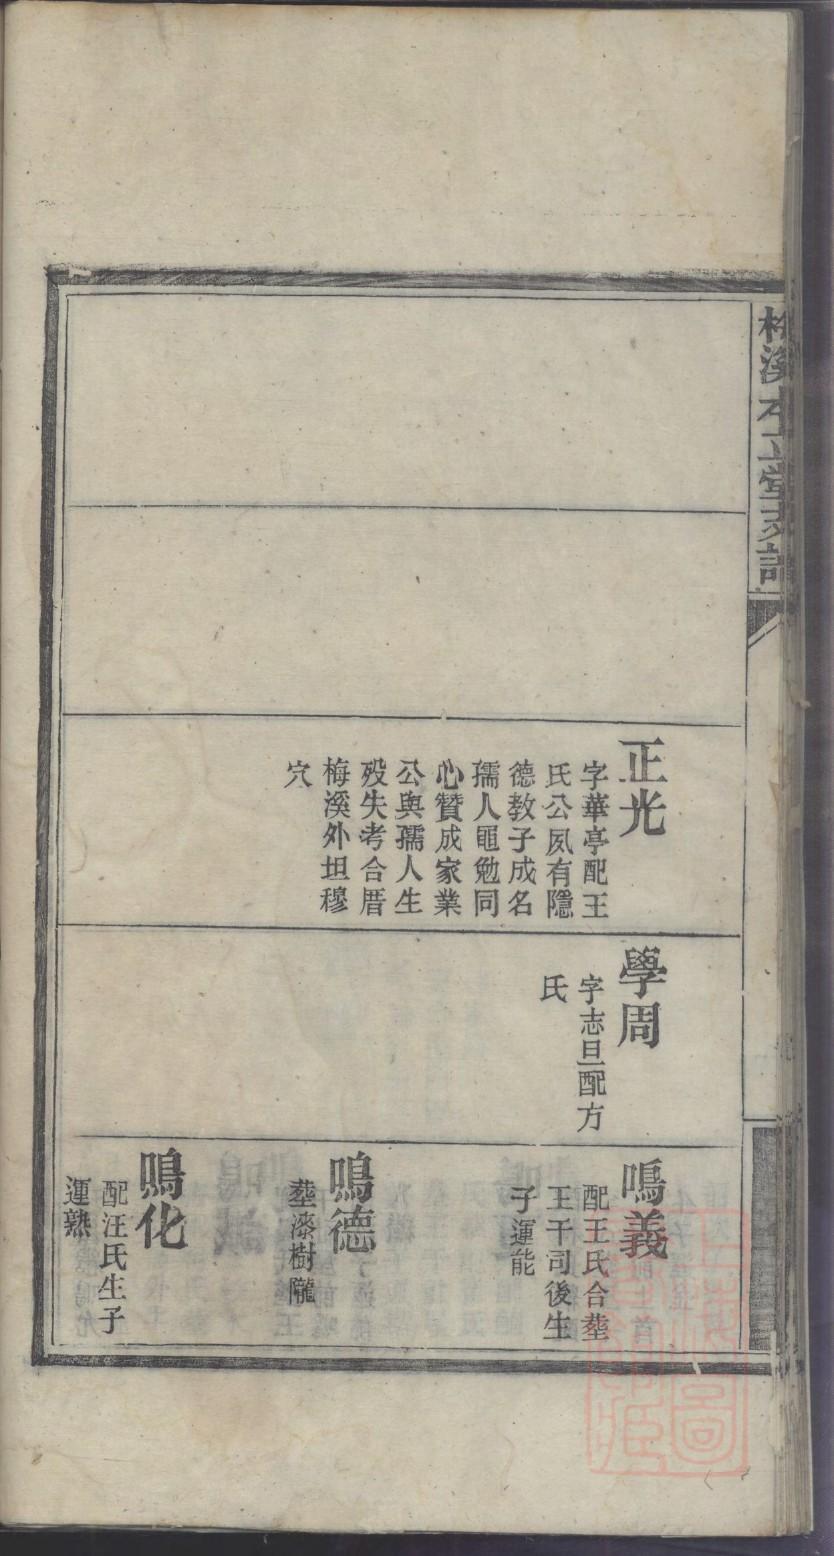 正光
字華亭配王
氏公夙有隱
德教子成名
孺人黽勉同
心贊成家業
公與孺人生
殁失考合厝
梅溪外坦穆
穴
學周
字志旦配方
氏
鳴義
配王氏合塟
王干司後生
子運能
鳴德
塟漆樹隴
鳴化
配汪氏生子
運熟
溪本立堂支譜